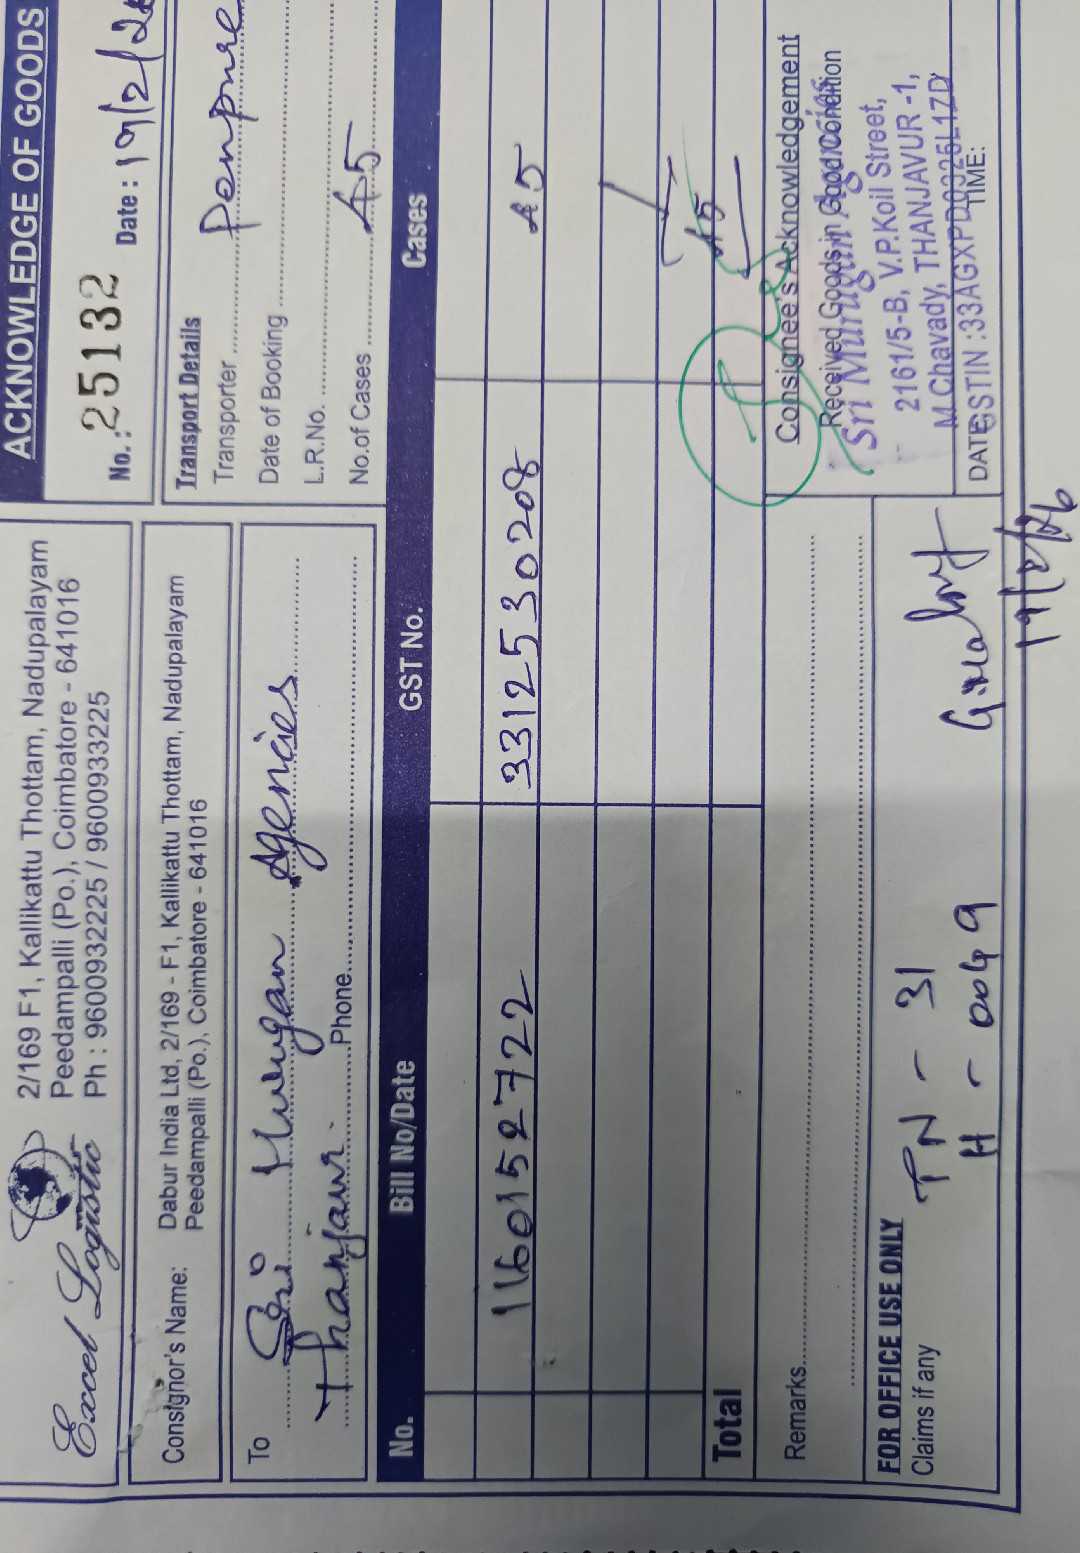 ACKNOWLEDGE OF GOODS
Excel Logistic
2/169 F1, Kallikattu Thottam, Nadupalayam
Peedampalli (Po.), Coimbatore - 641016
Ph : 9600932225 / 9600933225
No.: 25132 Date : 19/2/2
Consignor's Name: Dabur India Ltd, 2/169 - F1, Kallikattu Thottam, Nadupalayam
Peedampalli (Po.), Coimbatore - 641016
To Sri Murugan Agencies
Thanjavur Phone
Transport Details
Transporter
Date of Booking
L.R.No.
No.of Cases 45
No. Bill No/Date GST No. Cases
1160152722 33125530208 45
Total 45
Remarks
Consignee's Acknowledgement
Received Goods in Good Condition
Sri Murugan Agencies
2161/5-B, V.P.Koil Street,
M.Chavady, THANJAVUR-1,
GSTIN :33AGXPD0326L1ZD
DATE: TIME:
FOR OFFICE USE ONLY
Claims if any
TN - 31
H - 0049
19/2/26